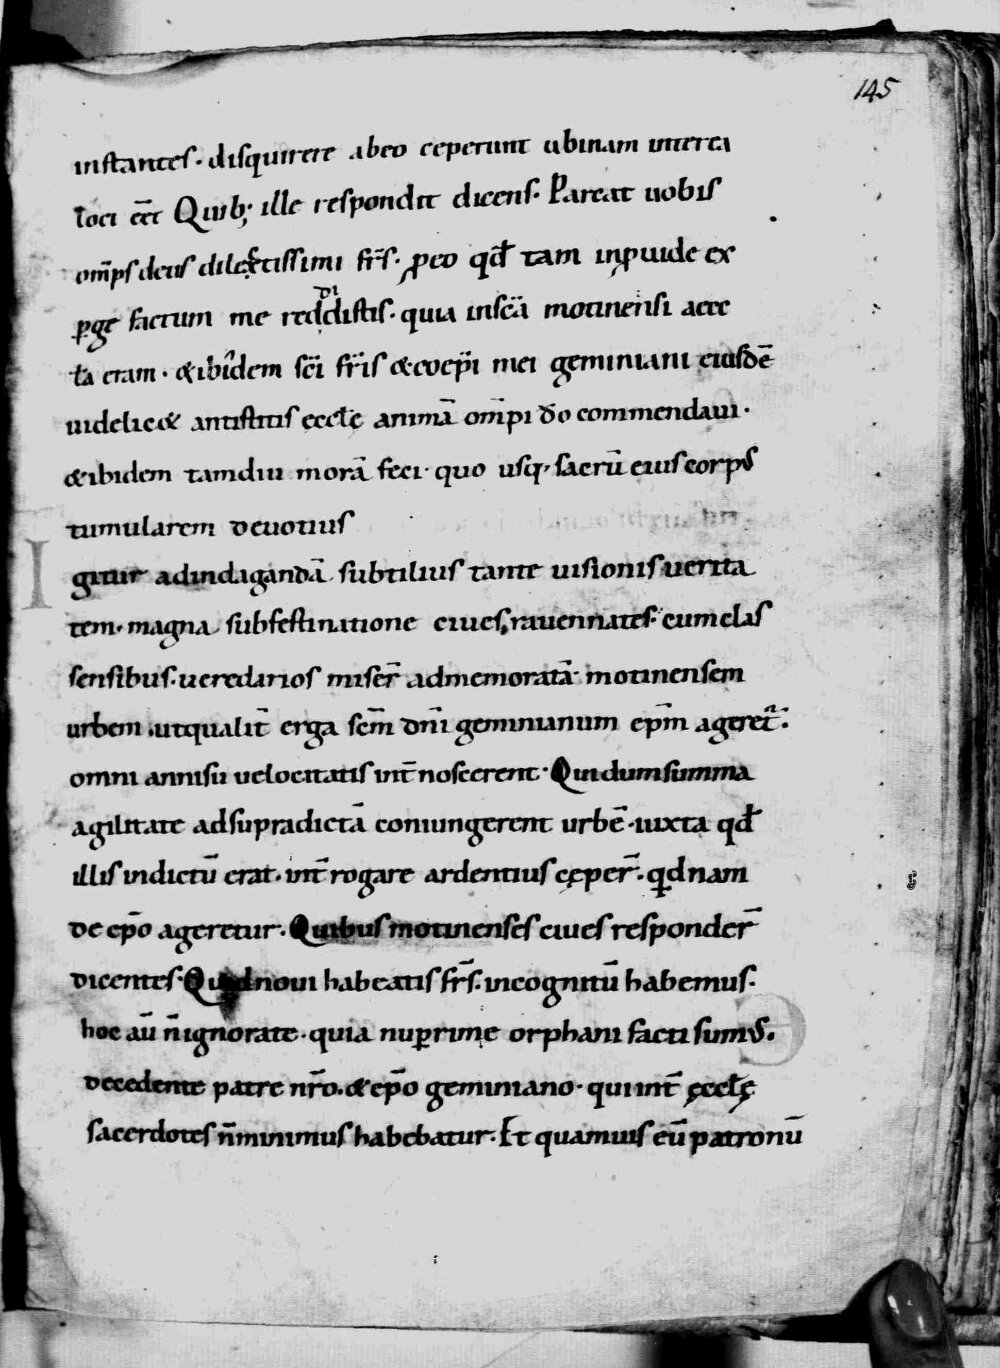 145
instantes. disquirere abeo ceperunt ubinam interea
loci eēt Quib; ille respondit dicens. Pareat uobis
om̄ps deus dilectissimi fr̄s. ꝓeo qđ tam inꝓuide ex
ꝑge factum me reddidistis. quia insc̄a motinensi aecc
ła eram. &ibidem sc̄i fr̄is &coep̄i mei geminiani eiusdē
uidelic& antistitis ęccłę animā om̄pi do commendaui.
&ibidem tamdiu morā feci. quo usq. sacrū eius corps
tumularem deuotius
Igitur adindagandā subtilius tante uisionis uerita
tem. magna subfestinatione ciues rauennates. eumelas
sensibus. ueredarios miser̄ admemoratā motinensem
urbem. utqualit̄ erga sc̄m dn̄i geminianum ep̄m ageret̄.
omni annisu uelocitatis int̄noscerent. Quidumsumma
agilitate adsupradictā coniungerent urbē. iuxta qđ
illis indictū erat. int̄rogare ardentius cęper̄. qdnam
de ep̄o ageretur. Quibus motinenses ciues responder̄
dicentes. Quidnoui habeatis fr̄s. incognitū habemus.
hoc aū n̄ignorate. quia nuꝑrime orphani facti sumus.
decedente patre nr̄o. &ep̄o geminiano. qui int̄ ęccłę
sacerdotes n̄minimus habebatur. Et quamuis eū patronū